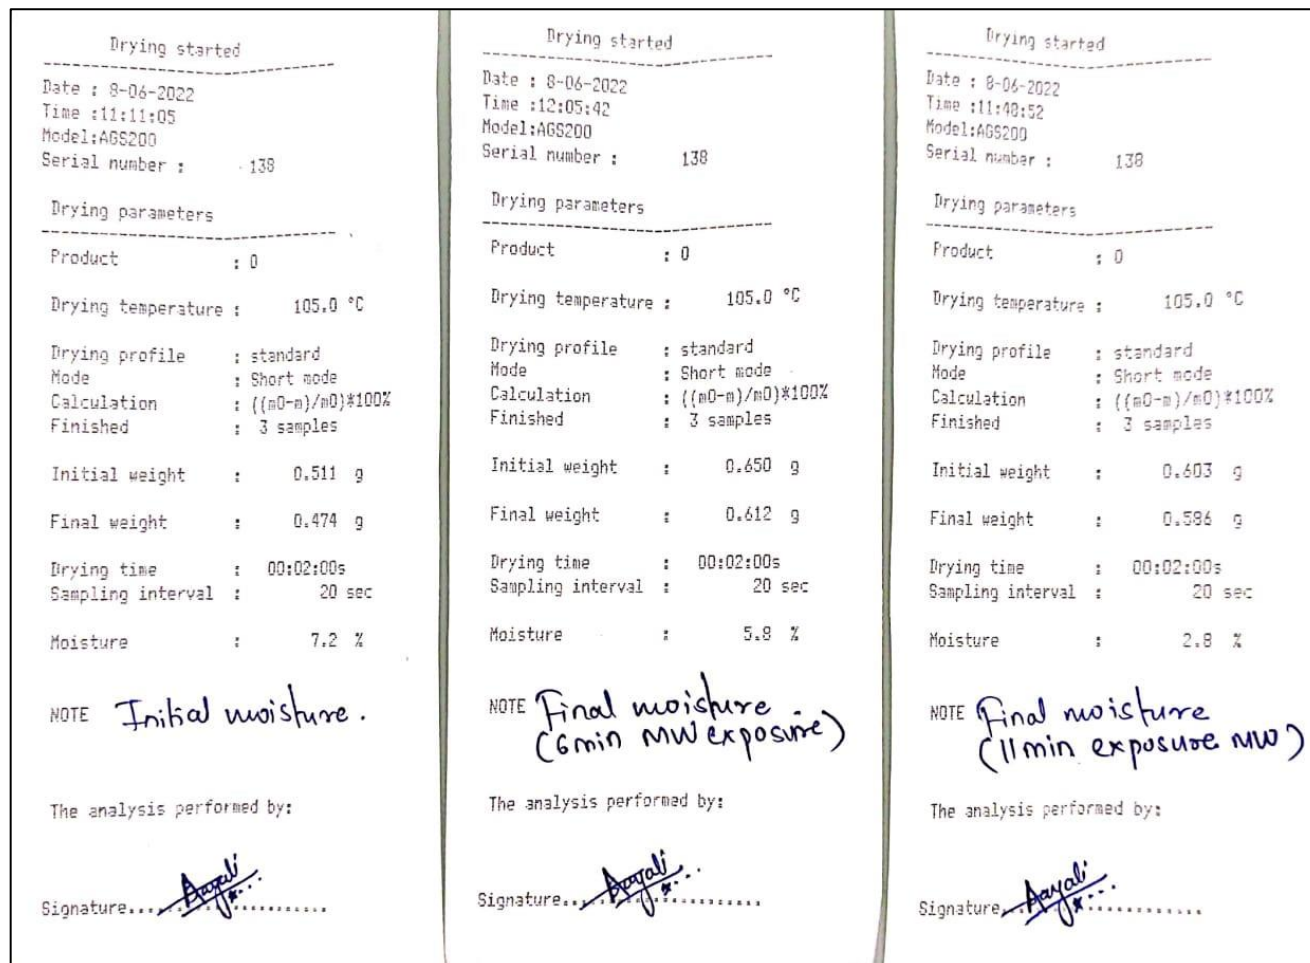 Drying started
Date : 8-06-2022
Time :11:11:05
Model:AGS200
Serial number : 138
Drying parameters
Product : 0
Drying temperature : 105.0 °C
Drying profile : standard
Mode : Short mode
Calculation : ((m0-m)/m0)*100%
Finished : 3 samples
Initial weight : 0.511 g
Final weight : 0.474 g
Drying time : 00:02:00s
Sampling interval : 20 sec
Moisture : 7.2 %
NOTE Initial moisture.
The analysis performed by:
Signature
Drying started
Date : 8-06-2022
Time :12:05:42
Model:AGS200
Serial number : 138
Drying parameters
Product : 0
Drying temperature : 105.0 °C
Drying profile : standard
Mode : Short mode
Calculation : ((m0-m)/m0)*100%
Finished : 3 samples
Initial weight : 0.650 g
Final weight : 0.612 g
Drying time : 00:02:00s
Sampling interval : 20 sec
Moisture : 5.8 %
NOTE Final moisture
(6min MW exposure)
The analysis performed by:
Signature
Drying started
Date : 8-06-2022
Time :11:48:52
Model:AGS200
Serial number : 138
Drying parameters
Product : 0
Drying temperature : 105.0 °C
Drying profile : standard
Mode : Short mode
Calculation : ((m0-m)/m0)*100%
Finished : 3 samples
Initial weight : 0.603 g
Final weight : 0.586 g
Drying time : 00:02:00s
Sampling interval : 20 sec
Moisture : 2.8 %
NOTE Final moisture
(11min exposure MW)
The analysis performed by:
Signature